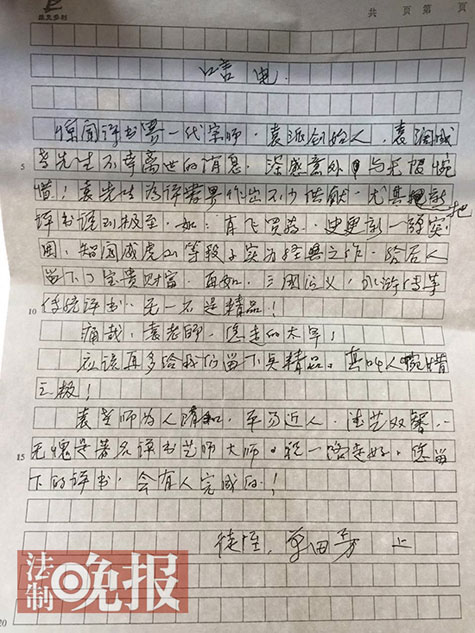 共 页 第 页
唁电
惊闻评书界一代宗师、袁派创始人、袁阔成
老先生不幸离世的消息,深感意外与无限惋
惜!袁先生为评书界作出不少供献,尤其把新
评书说到极至。如:肖飞买药、史更新一弹突
围、智闯威虎山等段子实为经典之作,给后人
留下了宝贵财富。再如,三国演义,水浒传等
传统评书,无一不是精品!
10
痛哉,袁老师,您走的太早!
应该再多给我们留下点精品,真叫人惋惜
之极!
袁老师为人随和,平易近人,德艺双馨,
无愧是著名评书艺师大师。祝一路走好,您留
15
下的评书,会有人完成的!
徒侄,单田芳 上
5
20
法制晚报